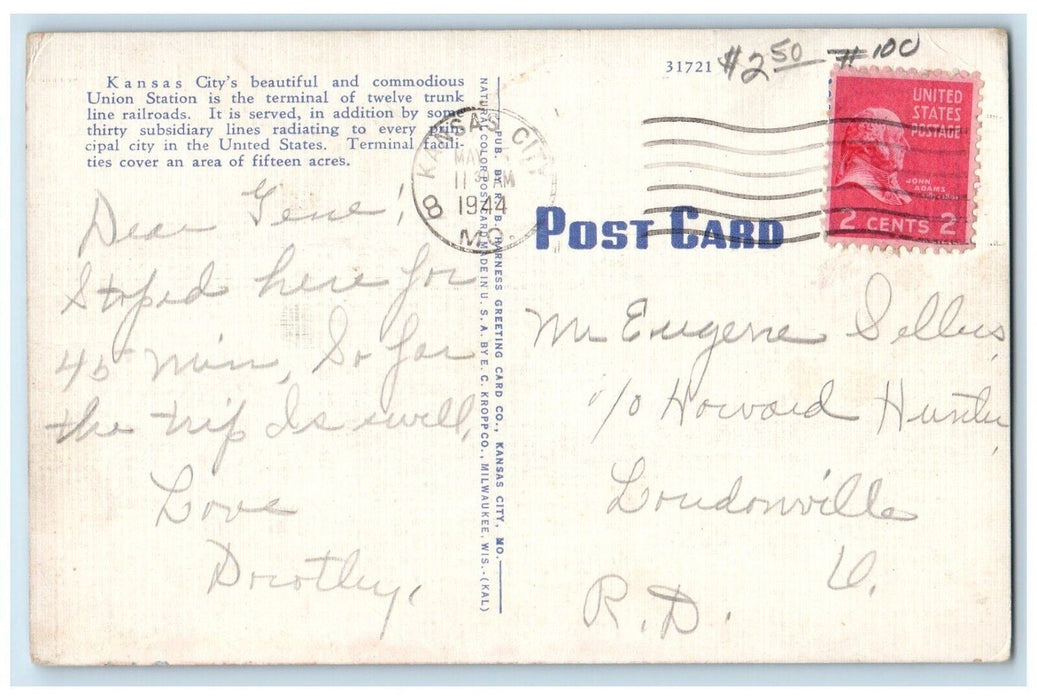 31721 $2.50 #100
Kansas City's beautiful and commodious
Union Station is the terminal of twelve trunk
line railroads. It is served, in addition by some
thirty subsidiary lines radiating to every prin-
cipal city in the United States. Terminal facili-
ties cover an area of fifteen acres.
KANSAS CITY
MAY
11 AM
1944
8
MO.
UNITED
STATES
POSTAGE
JOHN
ADAMS
2 CENTS 2
POST CARD
PUB. BY R. B. HARNESS GREETING CARD CO., KANSAS CITY, MO.
NATURAL COLOR POST CARD MADE IN U. S. A. BY E. C. KROPP CO., MILWAUKEE, WIS.-(KAL)
Dear Gene!
Stoped here for
45 Min, So far
the trip Is swell,
Love
Dorothy.
Mr Eugene Sellers
c/o Howard Hunter
Loudonville
O.
R.D.